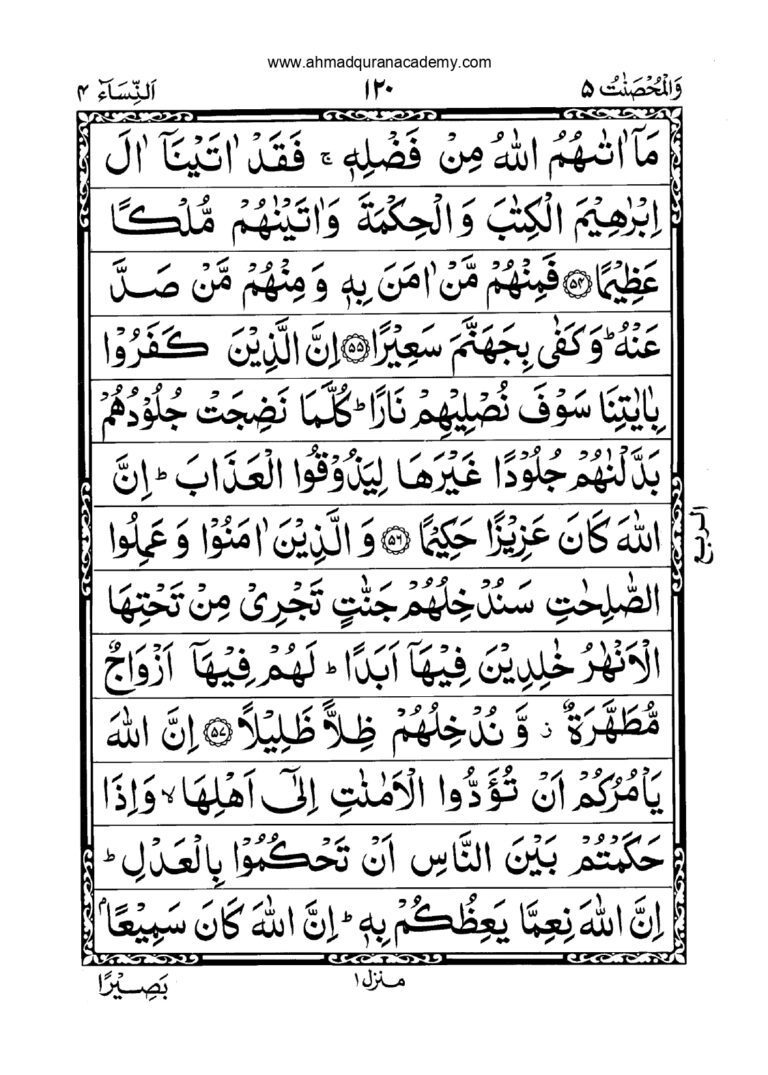 www.ahmadquranacademy.com
وَالْمُحْصَنٰتُ ٥
١٢٠
اَلنِّسَآء ۴
مَاۤ اٰتٰىهُمُ اللّٰهُ مِنْ فَضْلِهٖ ۚ فَقَدْ اٰتَيْنَاۤ اٰلَ
اِبْرٰهِيْمَ الْكِتٰبَ وَالْحِكْمَةَ وَاٰتَيْنٰهُمْ مُّلْكًا
عَظِيْمًا ﴿۵۴﴾ فَمِنْهُمْ مَّنْ اٰمَنَ بِهٖ وَمِنْهُمْ مَّنْ صَدَّ
عَنْهُ ؕ وَكَفٰى بِجَهَنَّمَ سَعِيْرًا ﴿۵۵﴾ اِنَّ الَّذِيْنَ كَفَرُوْا
بِاٰيٰتِنَا سَوْفَ نُصْلِيْهِمْ نَارًا ؕ كُلَّمَا نَضِجَتْ جُلُوْدُهُمْ
بَدَّلْنٰهُمْ جُلُوْدًا غَيْرَهَا لِيَذُوْقُوا الْعَذَابَ ؕ اِنَّ
اللّٰهَ كَانَ عَزِيْزًا حَكِيْمًا ﴿۵۶﴾ وَالَّذِيْنَ اٰمَنُوْا وَعَمِلُوا
الربع
الصّٰلِحٰتِ سَنُدْخِلُهُمْ جَنّٰتٍ تَجْرِيْ مِنْ تَحْتِهَا
الْاَنْهٰرُ خٰلِدِيْنَ فِيْهَاۤ اَبَدًا ؕ لَهُمْ فِيْهَاۤ اَزْوَاجٌ
مُّطَهَّرَةٌ ۡ وَّنُدْخِلُهُمْ ظِلًّا ظَلِيْلًا ﴿۵۷﴾ اِنَّ اللّٰهَ
يَاْمُرُكُمْ اَنْ تُؤَدُّوا الْاَمٰنٰتِ اِلٰۤى اَهْلِهَا ۙ وَاِذَا
حَكَمْتُمْ بَيْنَ النَّاسِ اَنْ تَحْكُمُوْا بِالْعَدْلِ ؕ
اِنَّ اللّٰهَ نِعِمَّا يَعِظُكُمْ بِهٖ ؕ اِنَّ اللّٰهَ كَانَ سَمِيْعًۢا
منزل ١
بَصِيْرًا